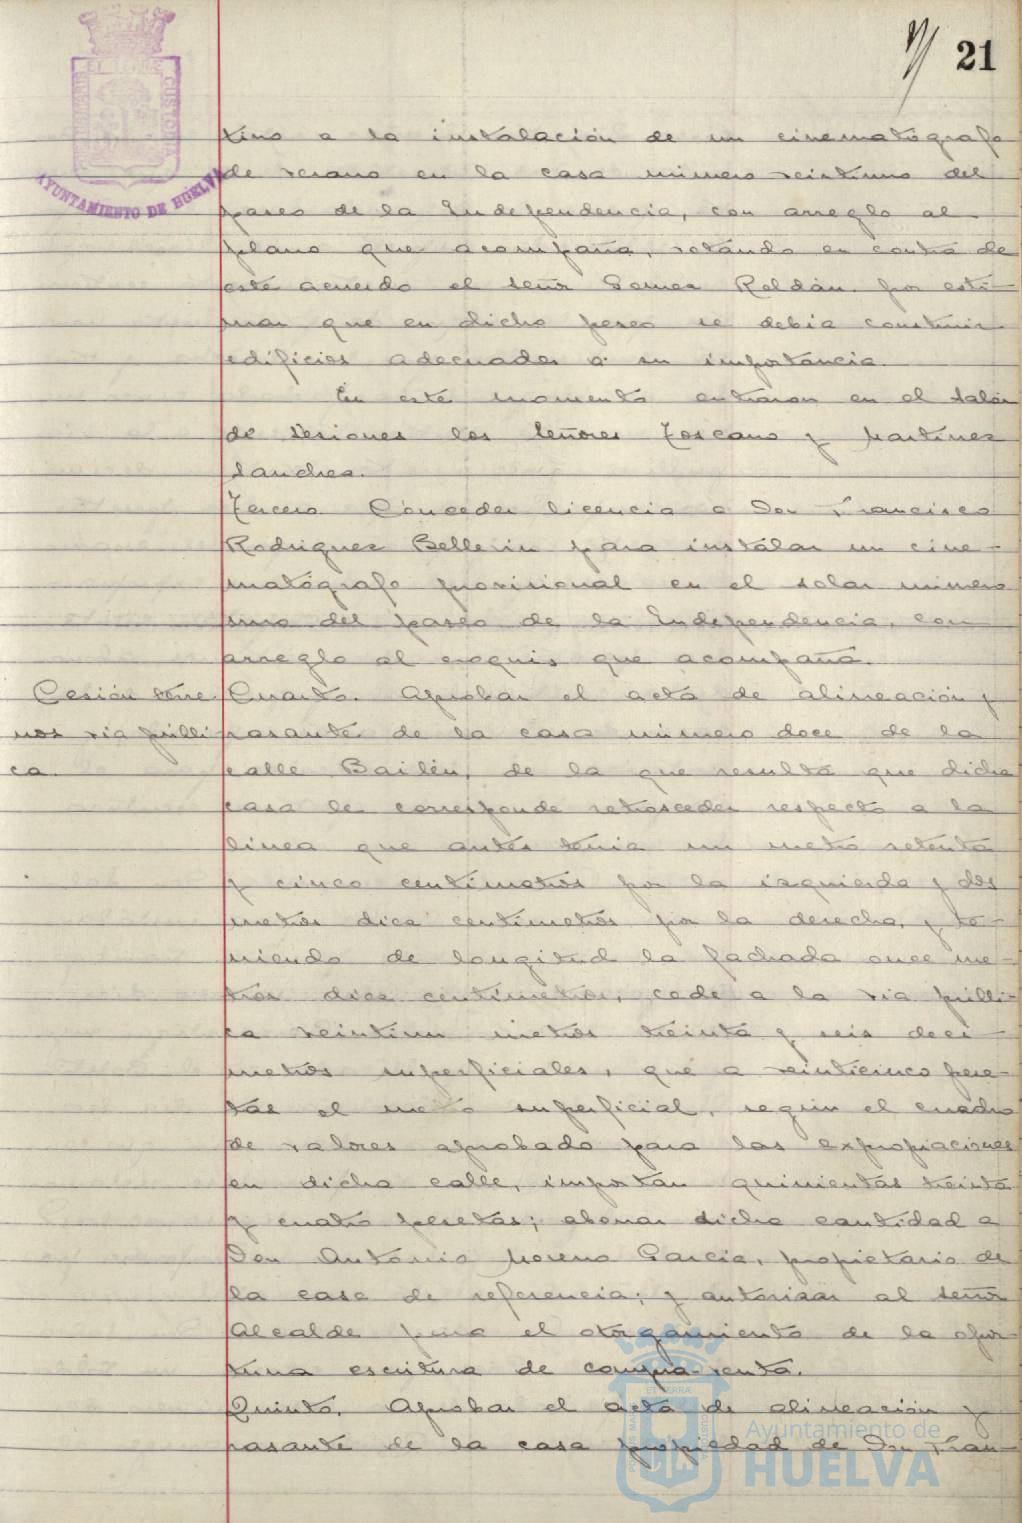 21
AYUNTAMIENTO DE HUELVA
tino a la instalación de un cinematógrafo
de verano en la casa número veintiuno del
paseo de la Independencia, con arreglo al
plano que acompaña, votando en contra de
este acuerdo el señor Gomez Roldán por esti-
mar que en dicho paseo se debia construir
edificios adecuados a su importancia.
En este momento entraron en el Salón
de Sesiones los Señores Toscano y Martinez
Sanchez.
Tercero. Conceder licencia a Don Francisco
Rodriguez Bellerin para instalar un cine-
matógrafo provisional en el solar número
uno del paseo de la Independencia, con
arreglo al croquis que acompaña.
Cesión terre
nos via públi
ca.
Cuarto. Aprobar el acta de alineación y
rasante de la casa número doce de la
calle Bailén, de la que resulta que dicha
casa le corresponde retroceder respecto a la
linea que antes tenia un metro setenta
y cinco centimetros por la izquierda y dos
metros diez centimetros por la derecha, y te-
niendo de longitud la fachada once me-
tros diez centimetros, cede a la via públi-
ca veintiun metros treinta y seis deci-
metros superficiales, que a veinticinco pese-
tas el metro superficial, según el cuadro
de valores aprobado para las expropiaciones
en dicha calle, importan quinientas treinta
y cuatro pesetas; abonar dicha cantidad a
Don Antonio Moreno Garcia, propietario de
la casa de referencia; y autorizar al señor
Alcalde para el otorgamiento de la opor-
tuna escritura de compra-venta.
Quinto. Aprobar el acta de alineación y
rasante de la casa propiedad de Don Fran-
Ayuntamiento de
HUELVA